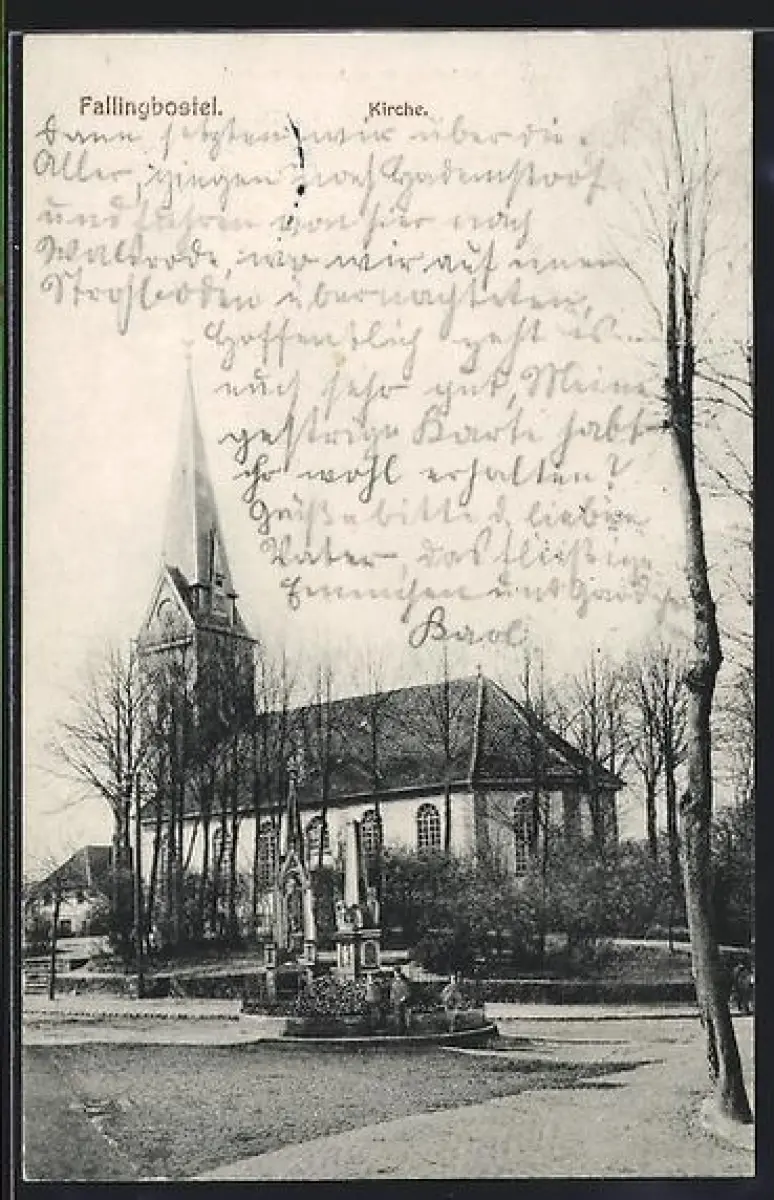 Fallingbostel. Kirche.
Dann setzten wir über die
Aller, gingen nach Hademstorf
und fuhren von hier nach
Walsrode, wo wir auf einem
Strohboden übernachteten,
Hoffentlich geht es
euch sehr gut, Meine
gestrige Karte habt
ihr wohl erhalten?
Grüße bitte d. lieben
Vater, das fleißige
Emmchen und
Karl